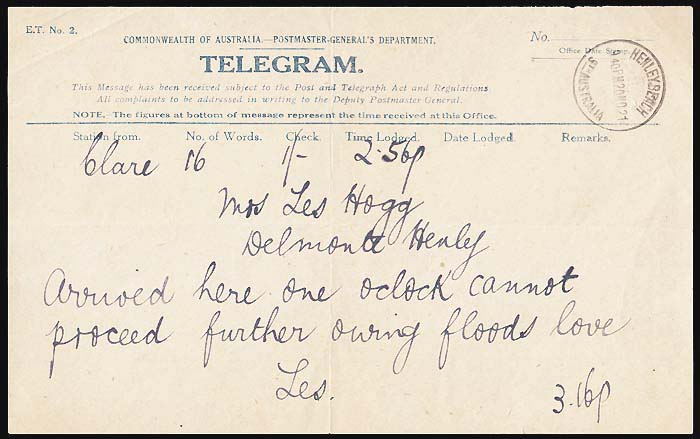 E.T. No. 2.
COMMONWEALTH OF AUSTRALIA.—POSTMASTER-GENERAL'S DEPARTMENT.
No.
Office Date Stamp
TELEGRAM.
This Message has been received subject to the Post and Telegraph Act and Regulations.
All complaints to be addressed in writing to the Deputy Postmaster-General.
NOTE.—The figures at bottom of message represent the time received at this Office.
HENLEY BEACH
STH AUSTRALIA
Station from. No. of Words. Check. Time Lodged. Date Lodged. Remarks.
Clare 16 1/- 2.56p
Mrs Les Hogg
Delmonte Henly
Arrived here one oclock cannot
proceed further owing floods love
Les.
3.16p